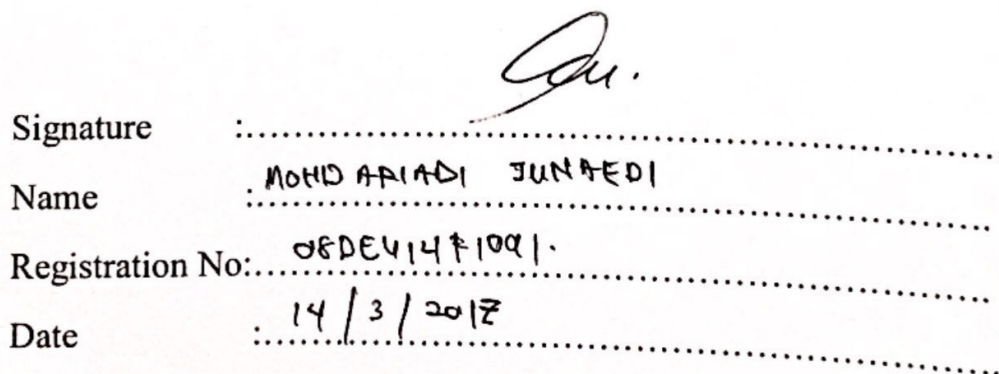 Signature :
Name : MOHD ARIADI JUNAEDI
Registration No: 08DEU14F1091.
Date : 14/3/2017